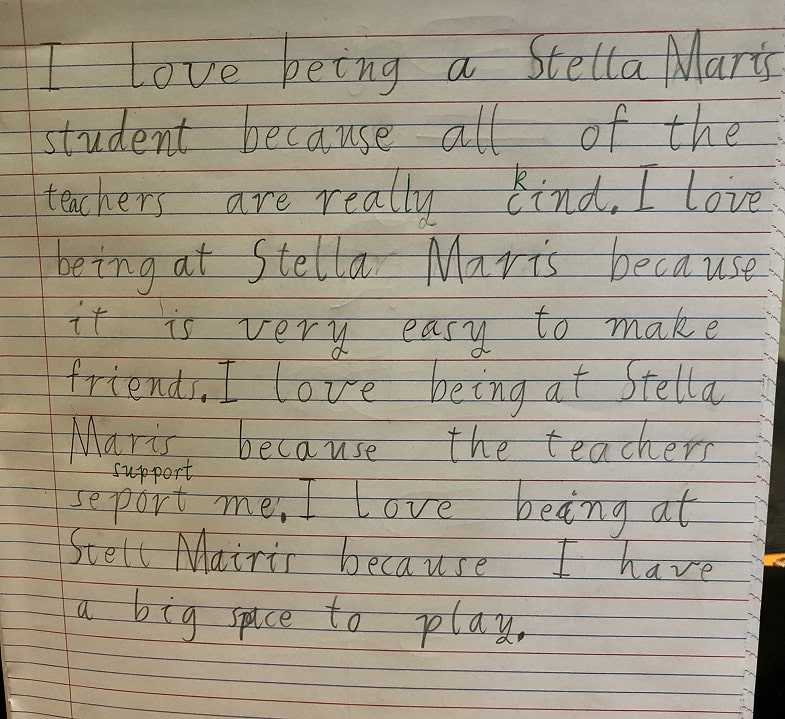 I love being a Stella Maris
student because all of the
teachers are really cind. I love
k
being at Stella Maris because
it is very easy to make
friends. I love being at Stella
Maris because the teachers
support
seport me. I love being at
Stell Mairis because I have
a big space to play.